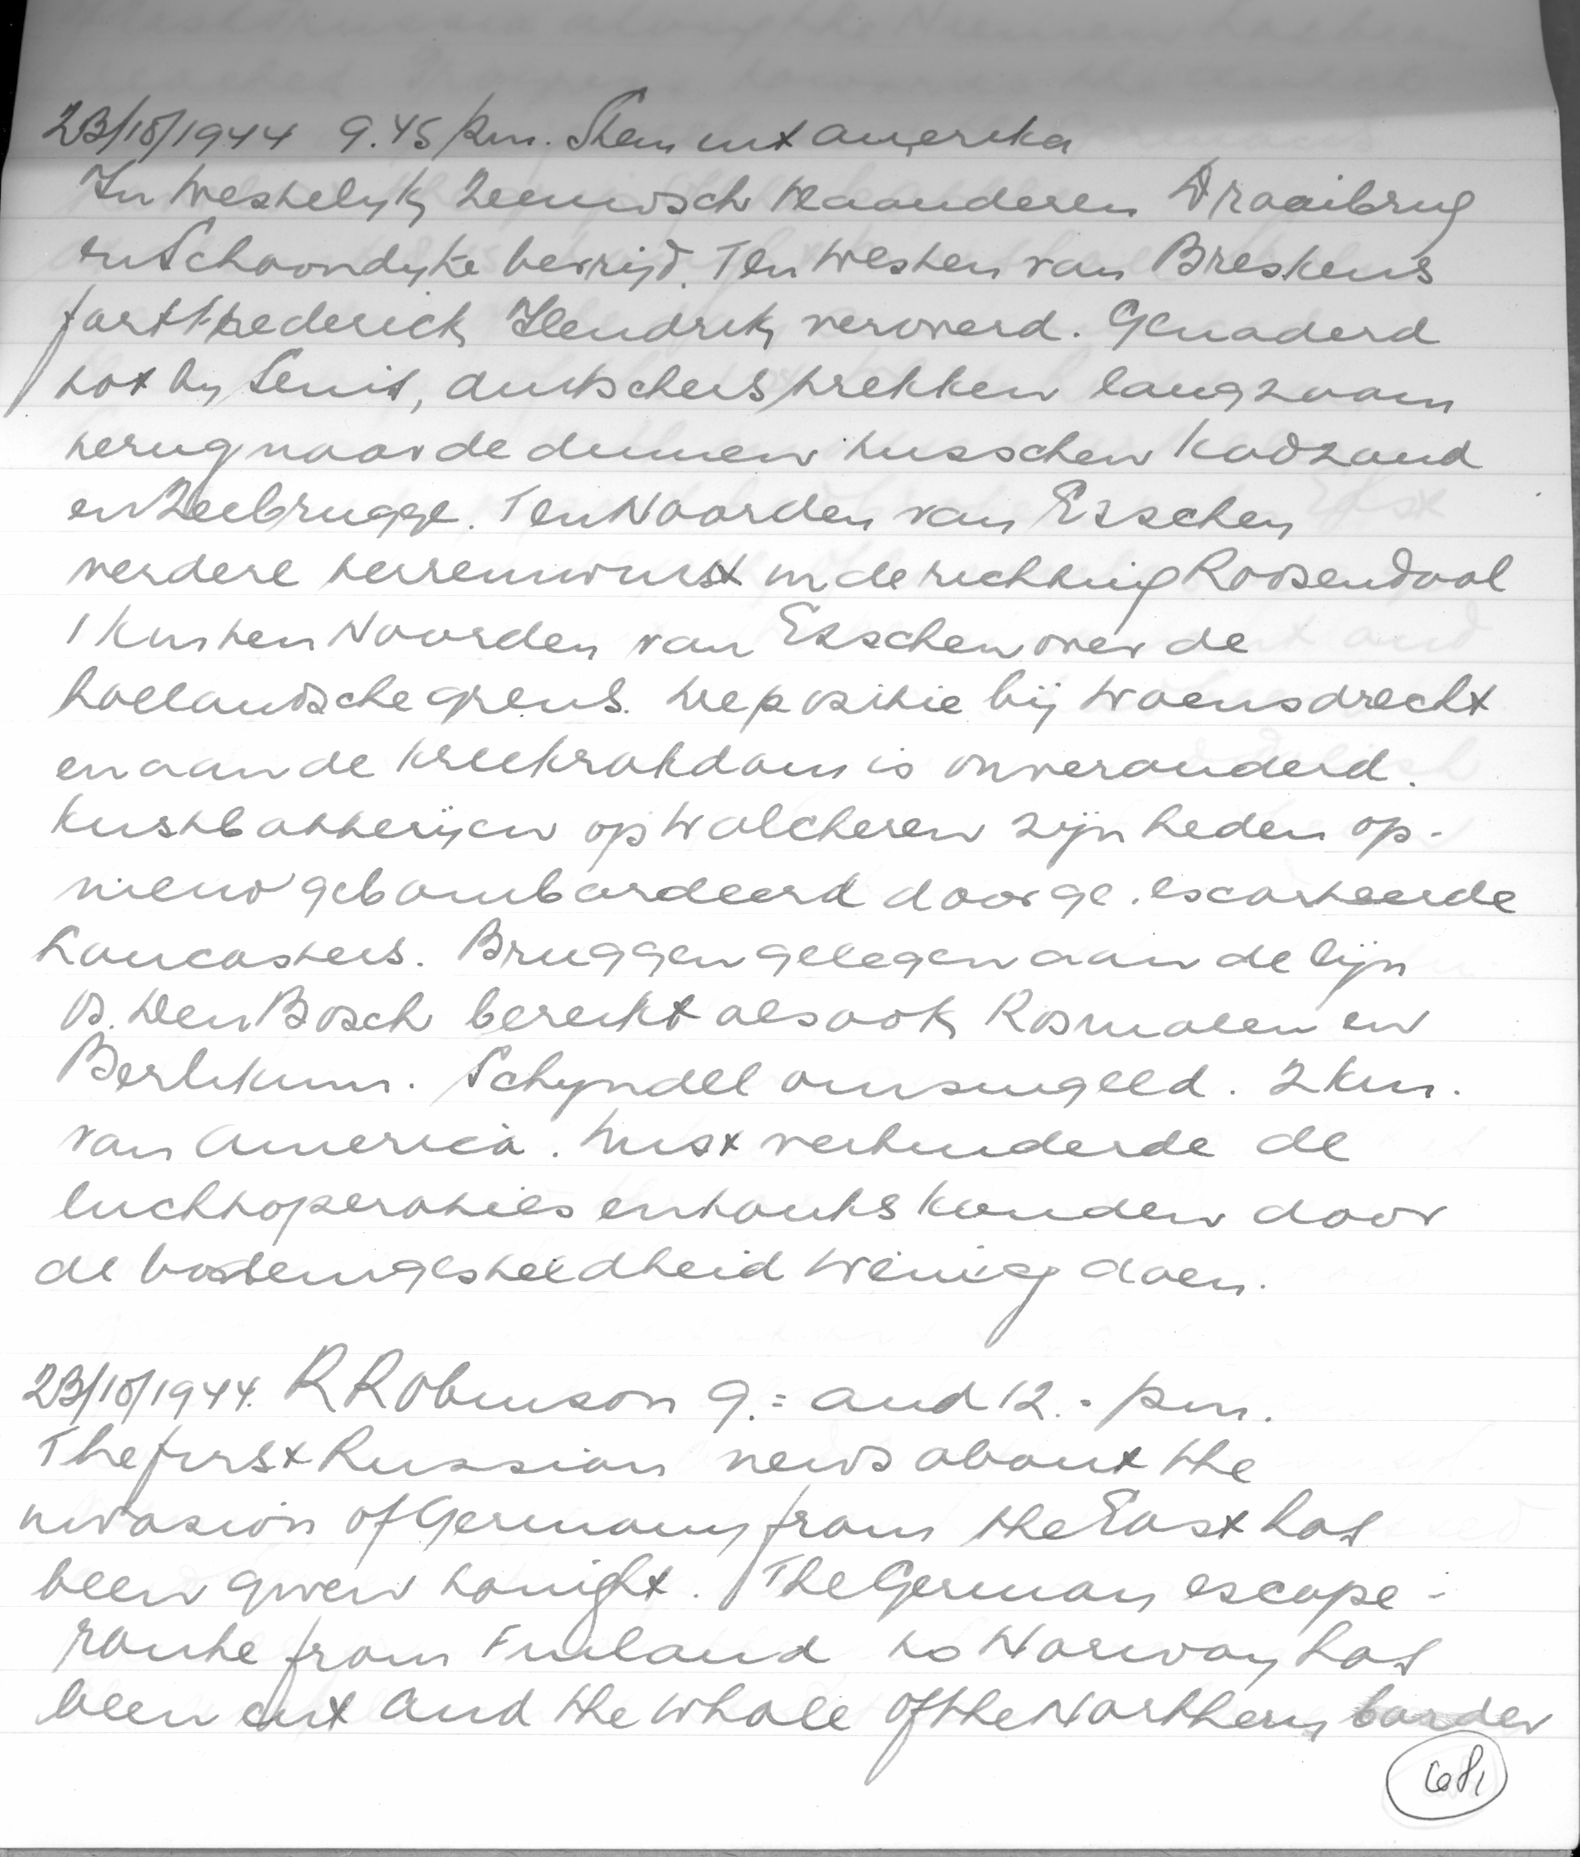 23/10/1944 9.45 p.m. Stem uit Amerika
In Westelyk Zeeuwsch Vlaanderen Draaibrug
en Schoondyke bevrijd. Ten Westen van Breskens
fort Frederick Hendrik veroverd. Genaderd
tot by Sluis, duitschers trekken langzaam
terug naar de duinen tusschen Kadzand
en Zeebrugge. Ten Noorden van Esschen
verdere terreinwinst in de richting Roosendaal
1 km ten Noorden van Esschen over de
hollandsche grens. De positie bij Woensdrecht
en aan de Kreekrakdam is onveranderd.
Kustbatterijen op Walcheren zijn heden op-
nieuw gebombardeerd door ge.escorteerde
Lancasters. Bruggen gelegen aan de lijn
Os. Den Bosch bereikt alsook Rosmalen en
Berlikum. Schyndel omsingeld. 2 km.
van America. Mist verhinderde de
luchtoperaties en tanks konden door
de bodemgesteldheid weinig doen.
23/10/1944. R Robinson 9.= and 12.= p.m.
The first Russian news about the
invasion of Germany from the East has
been given tonight. The German escape-
route from Finland to Norway has
been cut and the whole of the Northern border
681